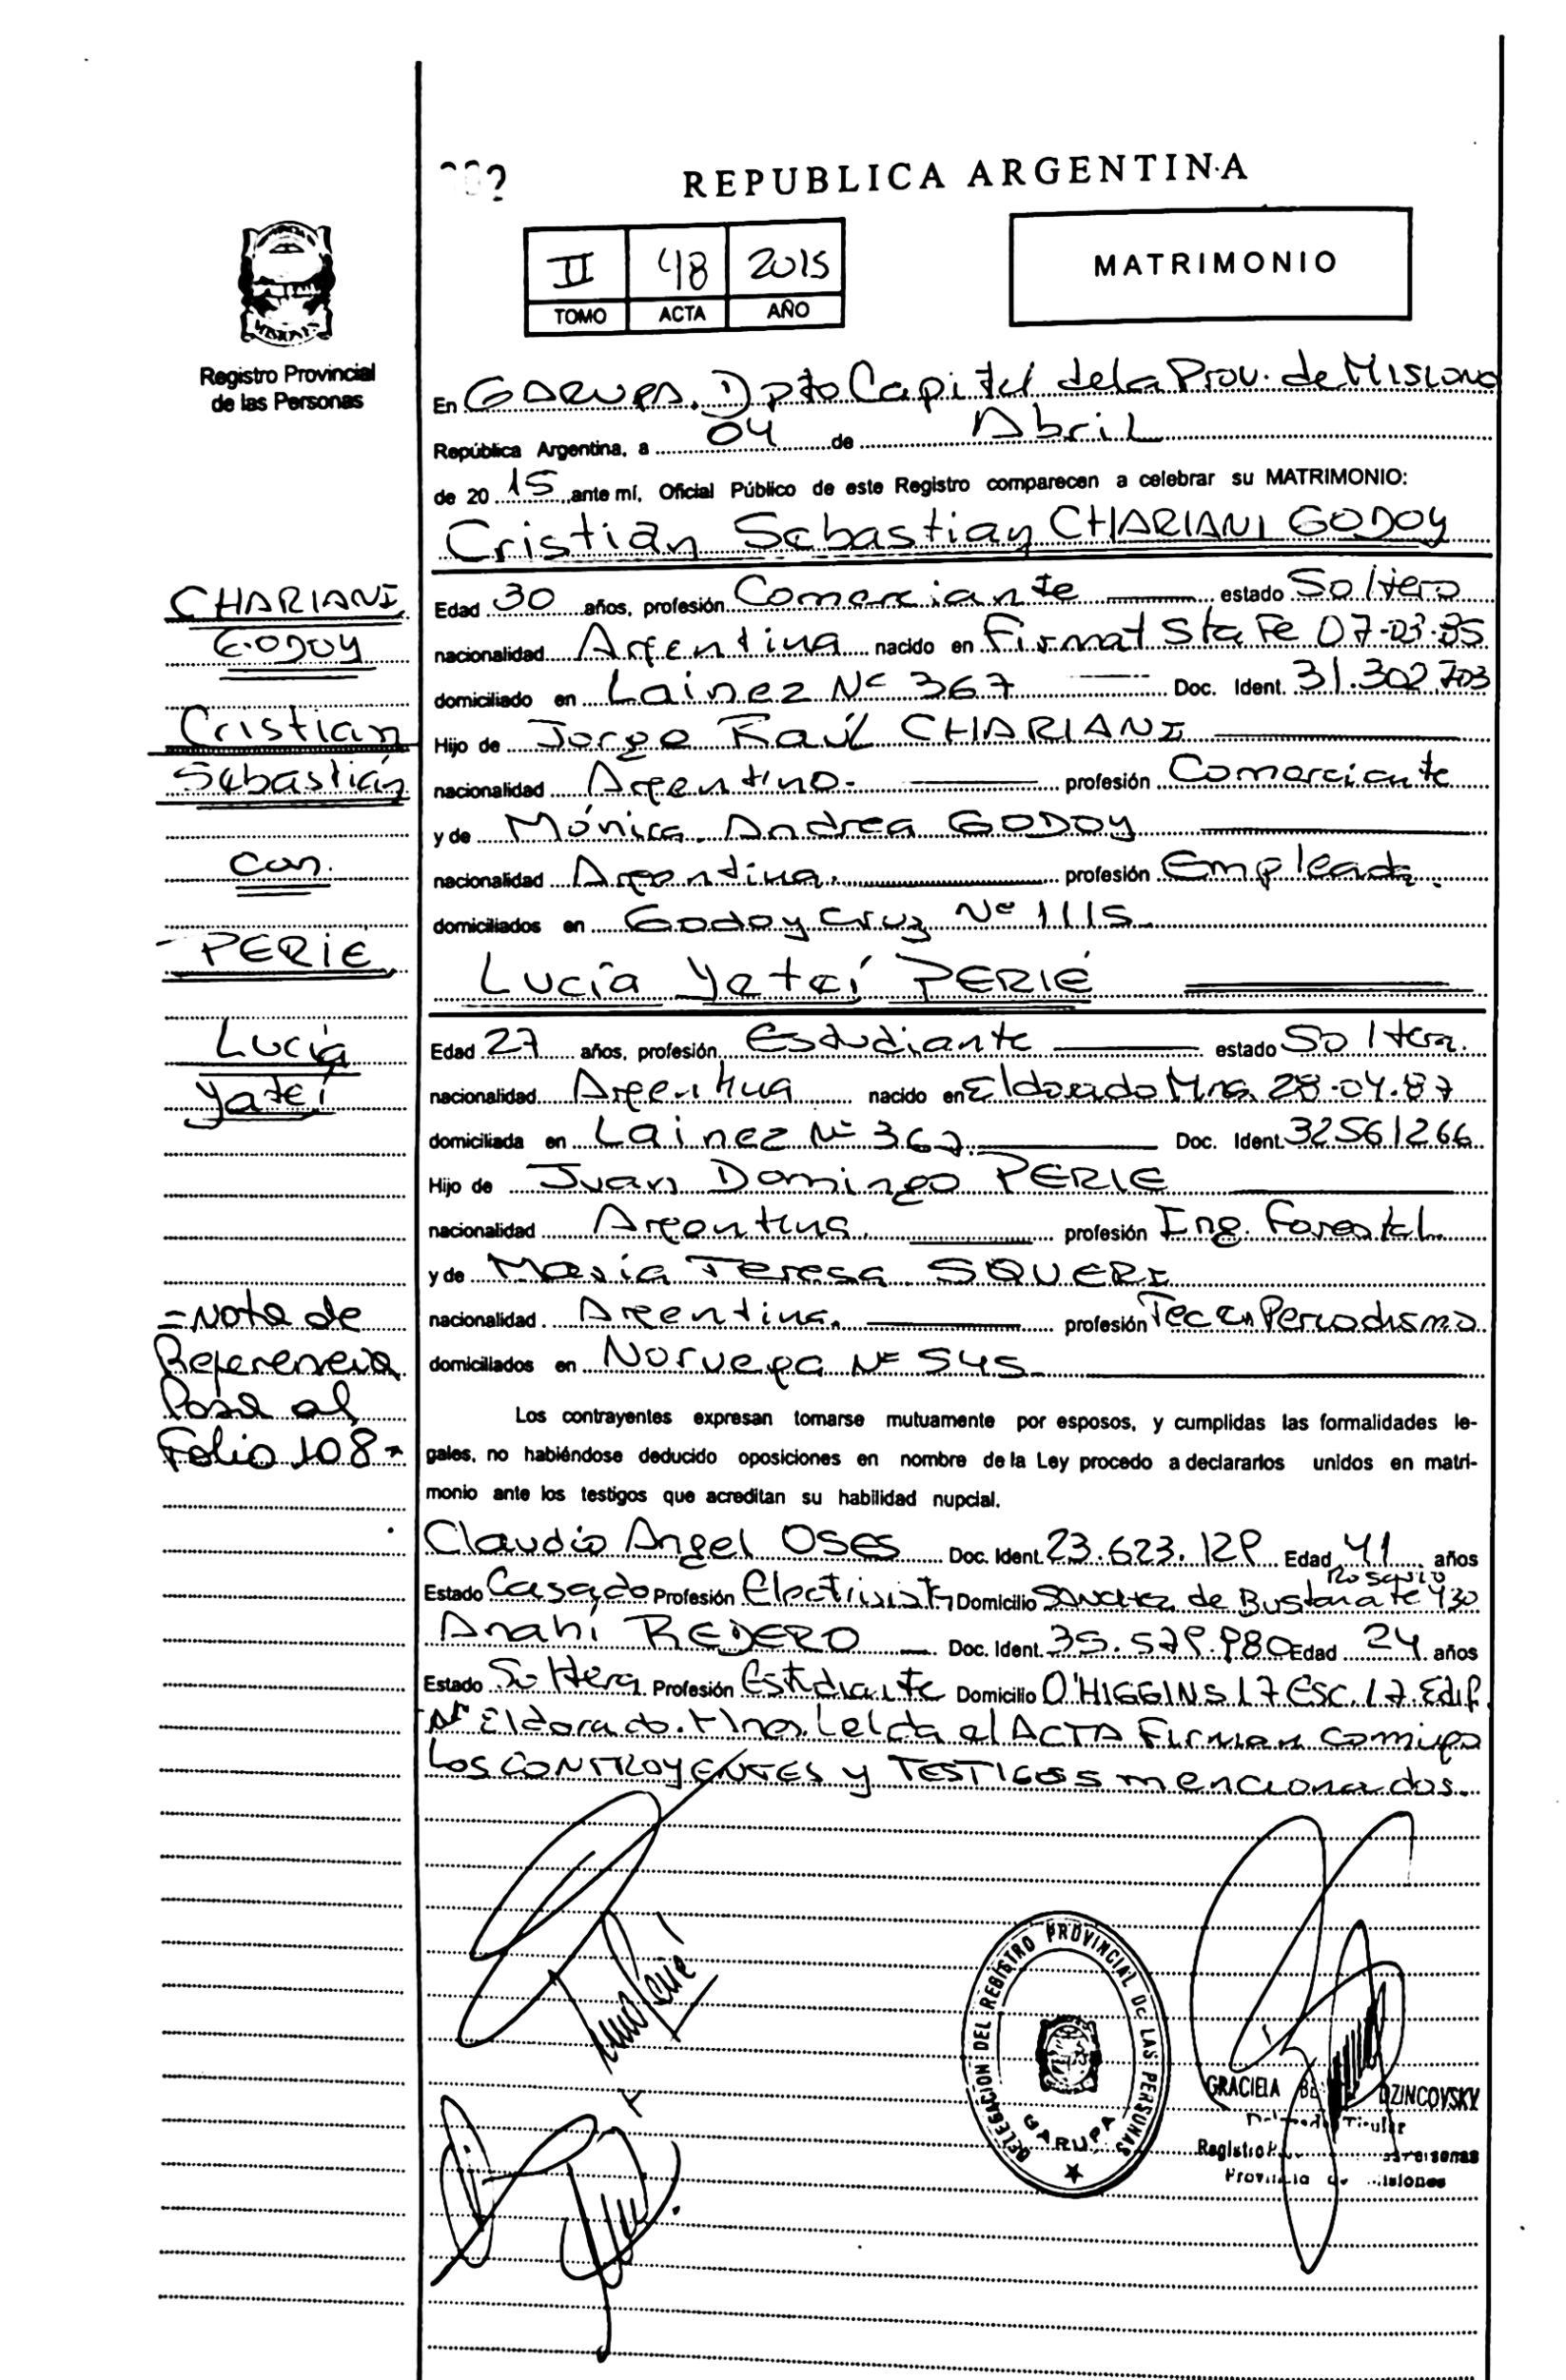 REPUBLICA ARGENTINA
II 48 2015
TOMO ACTA AÑO
MATRIMONIO
Registro Provincial
de las Personas
En GARUPA. Dpto Capital de la Prov. de Misiones
República Argentina, a 04 de Abril
de 20 15 ante mí, Oficial Público de este Registro comparecen a celebrar su MATRIMONIO:
Cristián Sebastian CHARIANI GODOY
Edad 30 años, profesión Comerciante estado Soltero
nacionalidad Argentina nacido en Firmat Sta Fe 07-03-85
domiciliado en Lainez Nº 367 Doc. Ident. 31.302.703
Hijo de Jorge Raúl CHARIANI
nacionalidad Argentino. profesión Comerciante
y de Mónica Andrea GODOY
nacionalidad Argentina. profesión Empleada.
domiciliados en Godoy Cruz Nº 1115
Lucía Yateí PERIÉ
Edad 27 años, profesión Estudiante estado Soltera.
nacionalidad Argentina nacido en Eldorado Mnes. 28-04-87
domiciliada en Lainez Nº 367. Doc. Ident. 32561266
Hijo de Juan Domingo PERIE
nacionalidad Argentina. profesión Ing. Forestal.
y de María Teresa SQUERI
nacionalidad. Argentina. profesión Tec en Periodismo
domiciliados en Noruega Nº 545
Los contrayentes expresan tomarse mutuamente por esposos, y cumplidas las formalidades le-
gales, no habiéndose deducido oposiciones en nombre de la Ley procedo a declararlos unidos en matri-
monio ante los testigos que acreditan su habilidad nupcial.
Claudio Angel OSES Doc. Ident. 23.623.129 Edad 41 años
Estado Casado Profesión Electricista Domicilio SANCHEZ de Bustamante 430 Rosario
Anahí REDERO Doc. Ident. 35.579.980 Edad 24 años
Estado Soltera Profesión Estudiante Domicilio O'HIGGINS 17 Esc. 17 Edif.
Nº Eldorado. Mnes. Leída el ACTA Firman conmigo
Los CONTRAYENTES y TESTIGOS mencionados.
CHARIANI
GODOY
Cristian
Sebastián
Con.
- PERIE
Lucía
Yateí
= Nota de
Referencia
Pasa al
Folio 108 =
DELEGACION DEL REGISTRO PROVINCIAL DE LAS PERSONAS
GARUPA
GRACIELA DZINCOVSKY
Titular
Registro
Provincia de Misiones